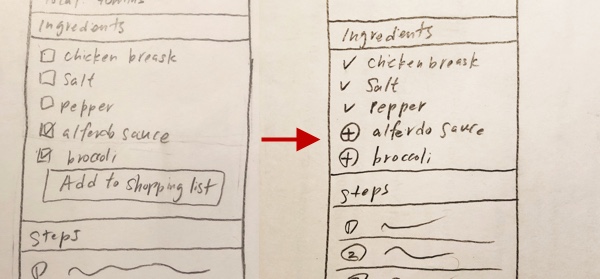 Ingredients
chicken breask
Salt
pepper
alferdo sauce
broccoli
Add to shopping list
Steps
1
Ingredients
chicken breask
Salt
Pepper
alferdo sauce
broccoli
Steps
1
2